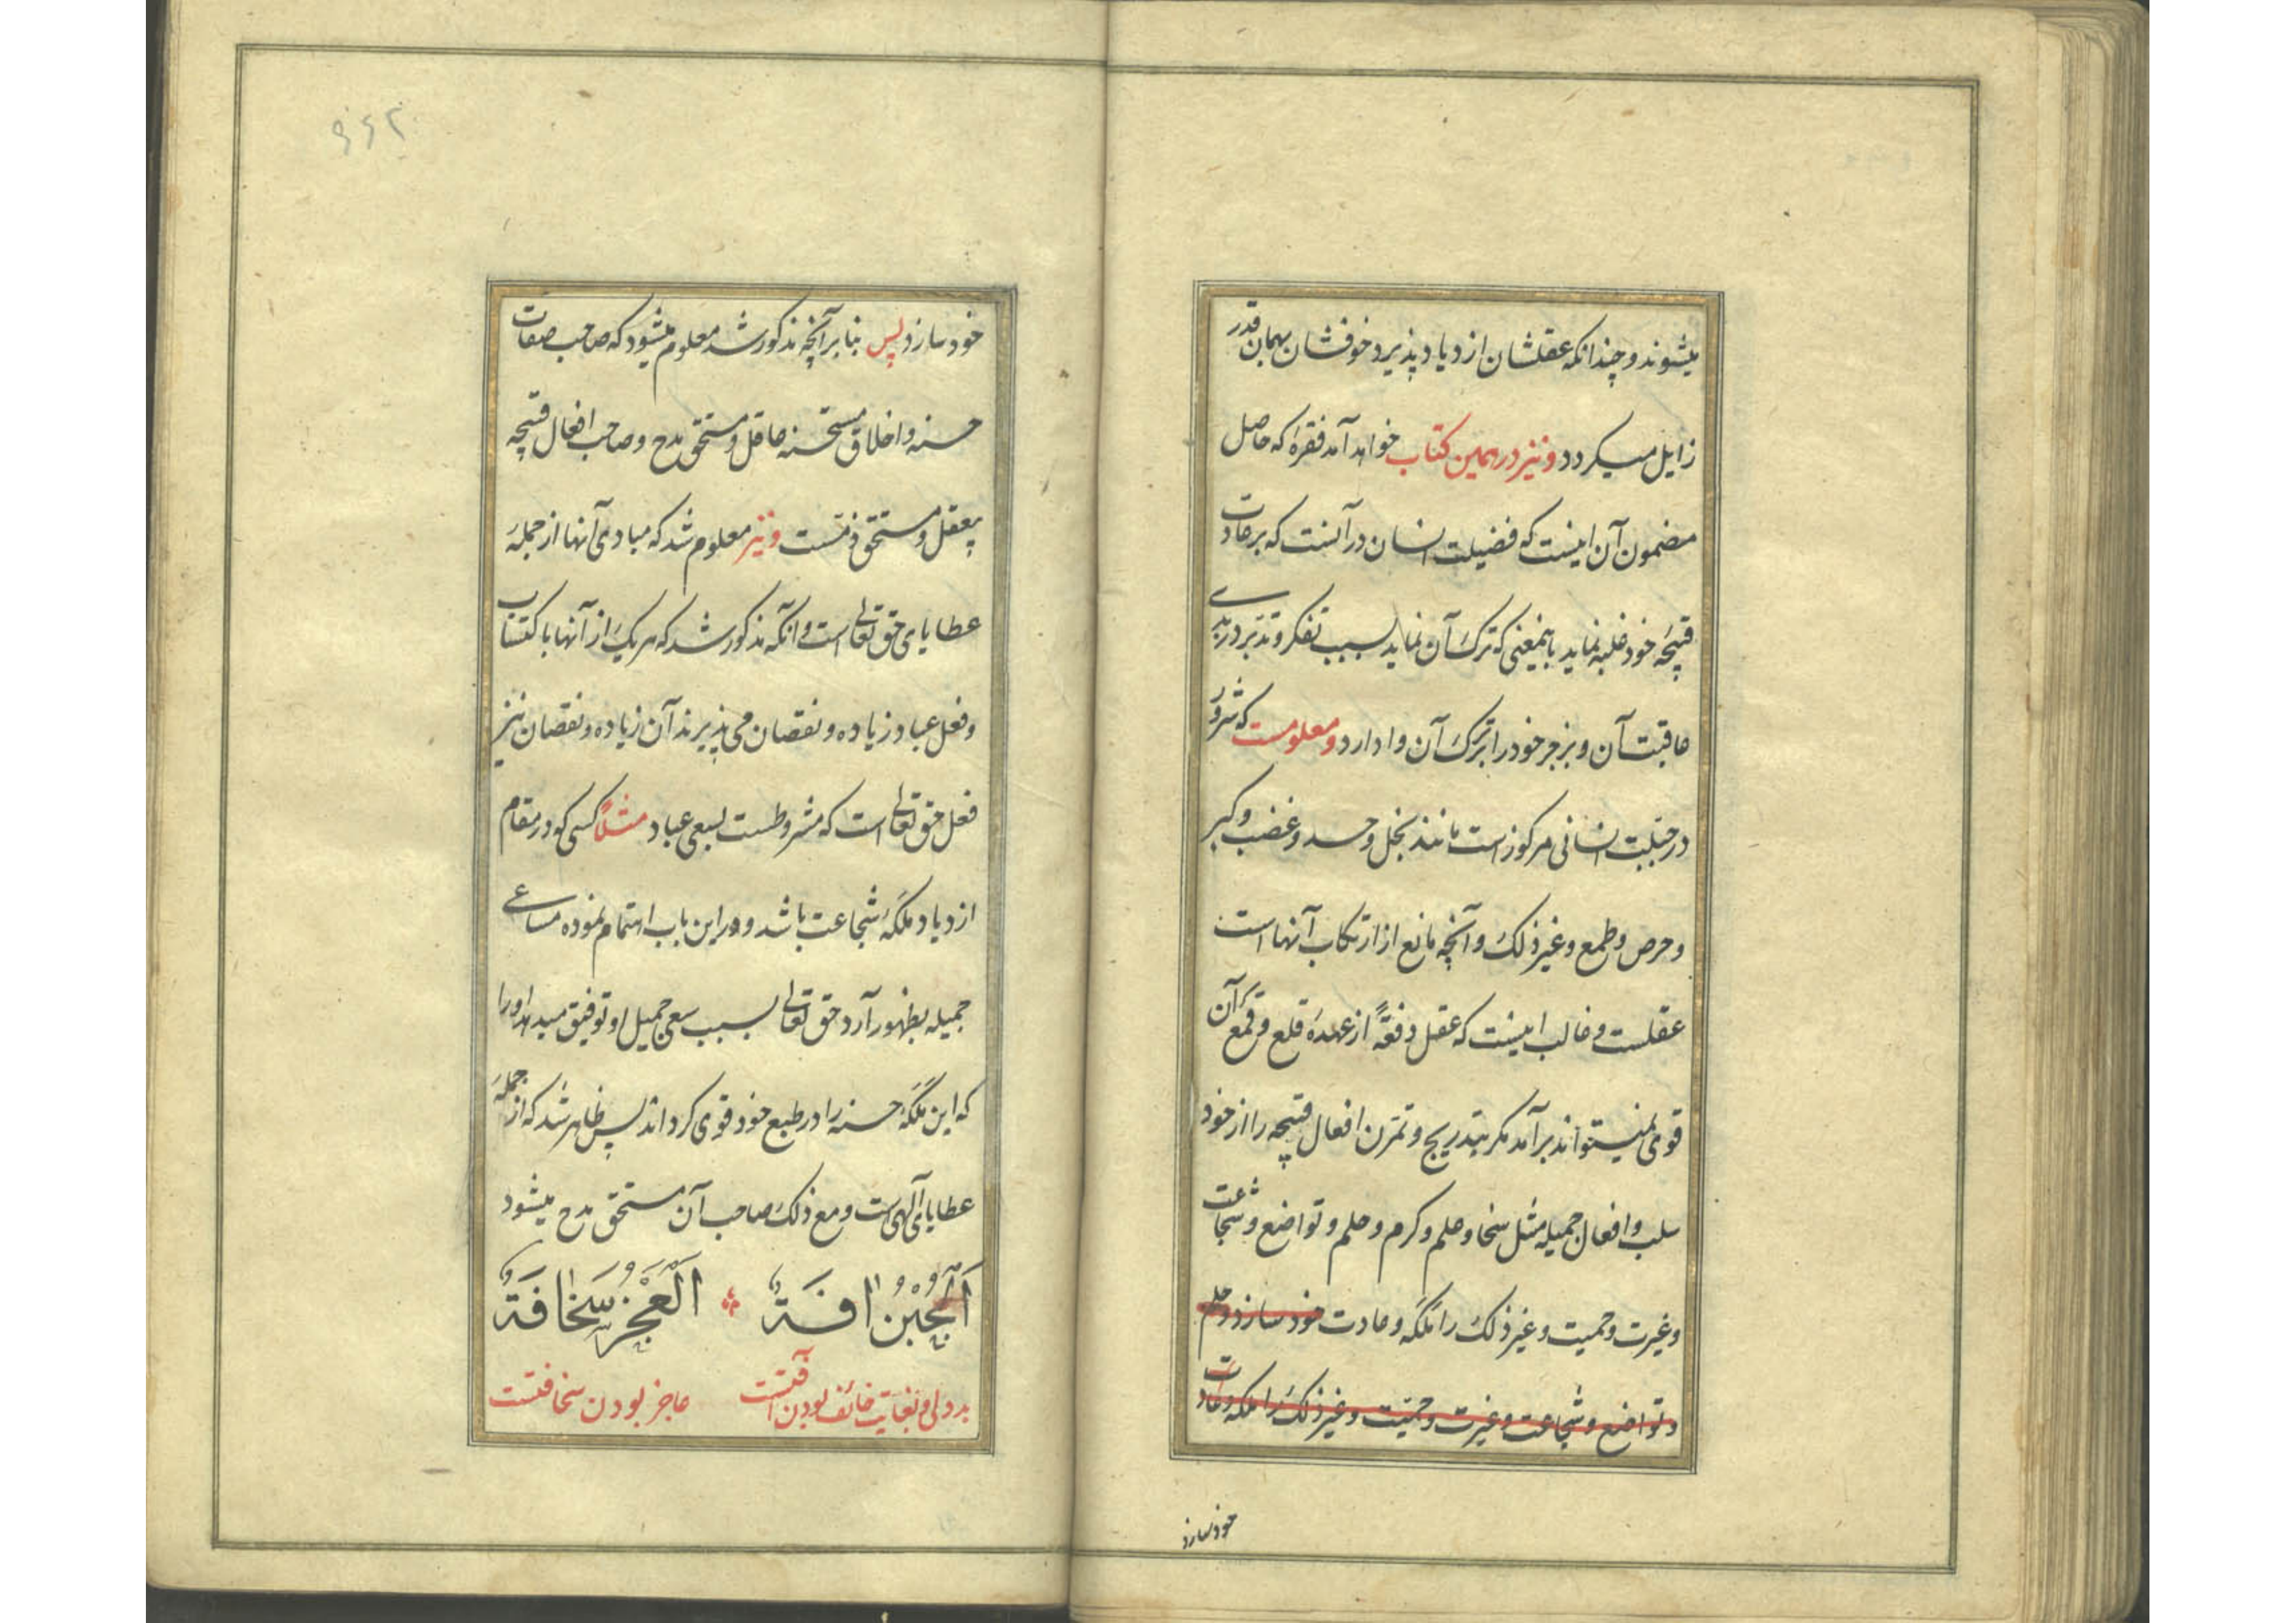 میشوند و چندانکه عقلشان ازدیاد پذیرد خوفشان بهمان قدر
زایل میکردد و نیز در همین کتاب خواهد آمد فقرهٔ که حاصل
مضمون آن اینست که فضیلت انسان در آنست که بر عادت
قبیحهٔ خود غلبه نماید باینمعنی که ترک آن نماید بسبب تفکر و تدبر در بدی
عاقبت آن و بزجر خود را بترک آن وا دارد و معلومست که شرور
در جبلت انسانی مرکوز است مانند بخل و حسد و غضب و کبر
و حرص و طمع و غیر ذلک و آنچه مانع از ارتکاب آنها است
عقلست و غالب اینست که عقل دفعةً از عهدهٔ قلع و قمع آن
قوی نمیتواند برآمد مکر بتدریج و تمرن افعال قبیحه را از خود
سلب و افعال جمیله مثل سخا و حلم و کرم و حلم و تواضع و شجاعت
و غیرت و حمیت و غیر ذلک را ملکه و عادت خود سازد و حلم
و تواضع و شجاعت و غیرت و حمیت و غیر ذلک را ملکه و عادت
خود سازد
۶۶۲
خود سازد پس بنا بر آنچه مذکور شد معلوم میشود که صاحب صفات
حسنه و اخلاق مستحسنه عاقل و مستحق مدح و صاحب افعال قبیحه
بیعقل و مستحق ذمّست و نیز معلوم شد که مبادی آنها از جملهٔ
عطایای حق تعالی است و آنکه مذکور شد که هر یک از آنها باکتساب
و فعل عباد زیاده و نقصان می پذیرند آن زیاده و نقصان نیز
فعل حق تعالی است که مشروطست بسعی عباد مثلاً کسی کو در مقام
ازدیاد ملکهٔ شجاعت باشد و در این باب اهتمام نموده مساعی
جمیله بظهور آرد حق تعالی بسبب سعی جمیل او توفیق میدهد او را
که این ملکهٔ حسنه را در طبع خود قوی کرداند پس ظاهر شد که از جملهٔ
عطایای آلهی است و مع ذلک صاحب آن مستحق مدح میشود
اَلْجُبْنُ اٰفَةٌ اَلْعَجْزُ سَخَافَةٌ
بددلی و بغایت خائف بودن آفتست عاجز بودن سخافتست